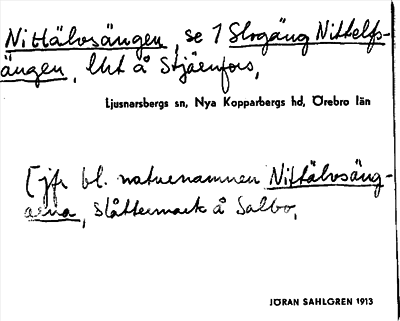 Nittälvsängen, se 1 Slogäng Nittelfs-
ängen, lht å Stjärnfors,
Ljusnarsbergs sn, Nya Kopparbergs hd, Örebro län
[jfr bl. naturnamnen Nittälvsäng-
arna, slåttermark å Salbo,
JÖRAN SAHLGREN 1913